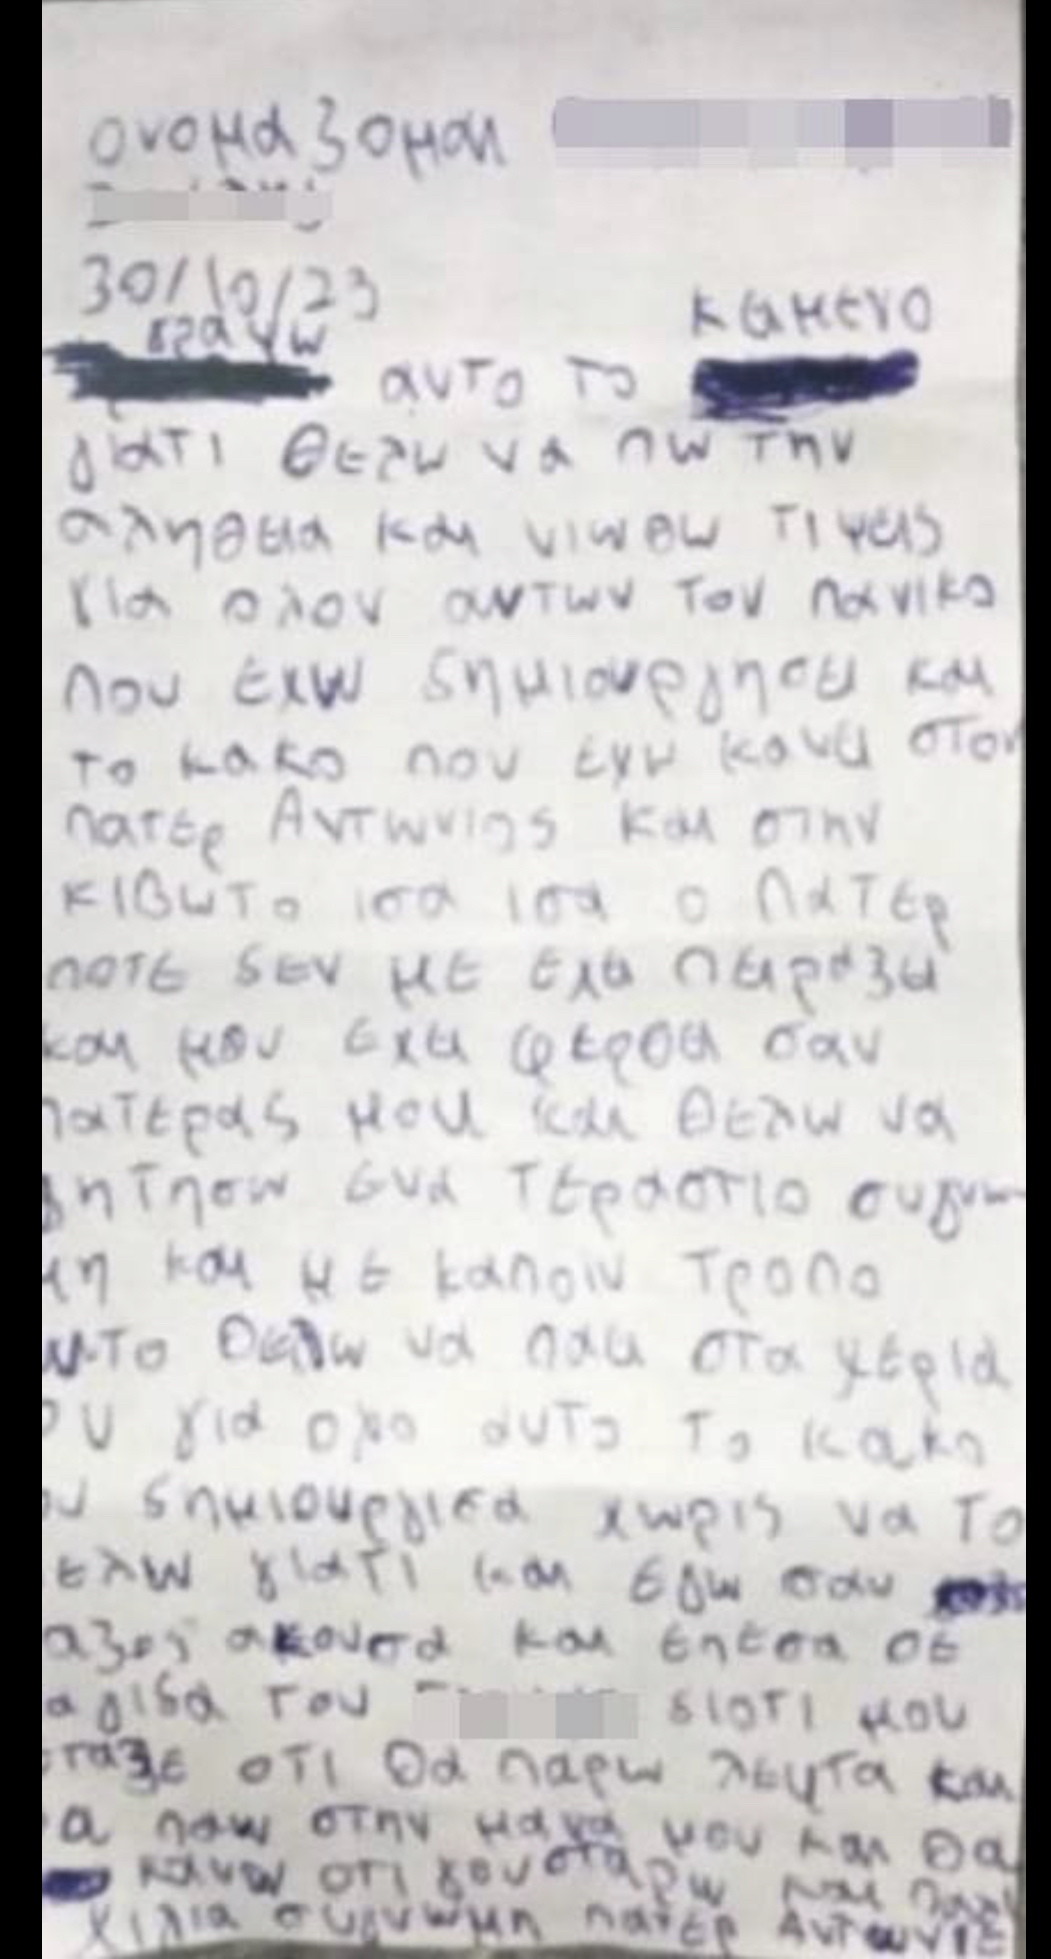 ονομαζομαι
30/10/23
γραφω καμενο
αυτο το
γιατι θελω να πω την
αληθεια και νιωθω τιψεις
για ολον αυτων τον πανικο
που εχω δημιουργησει και
το κακο που εχω κανει στον
πατερ Αντωνιος και στην
κιβωτο ισα ισα ο πατερ
ποτε δεν με εχει πειραξει
και μου εχει φερθει σαν
πατερας μου και θελω να
ζητησω ενα τεραστιο συγνω-
μη και με καποιν τροπο
θελω να παει στα χερια
ου για ολο αυτο το κακο
ου δημιουργισα χωρις να το
ελω γιατι και εγω σαν
αζος ακουσα και επεσα σε
αγιδα του διοτι μου
ταξε οτι θα παρω λεφτα και
α παω στην μανα μου και θα
κανω οτι γουσταρω και παλι
χιλια συγνωμη πατερ Αντωνιε